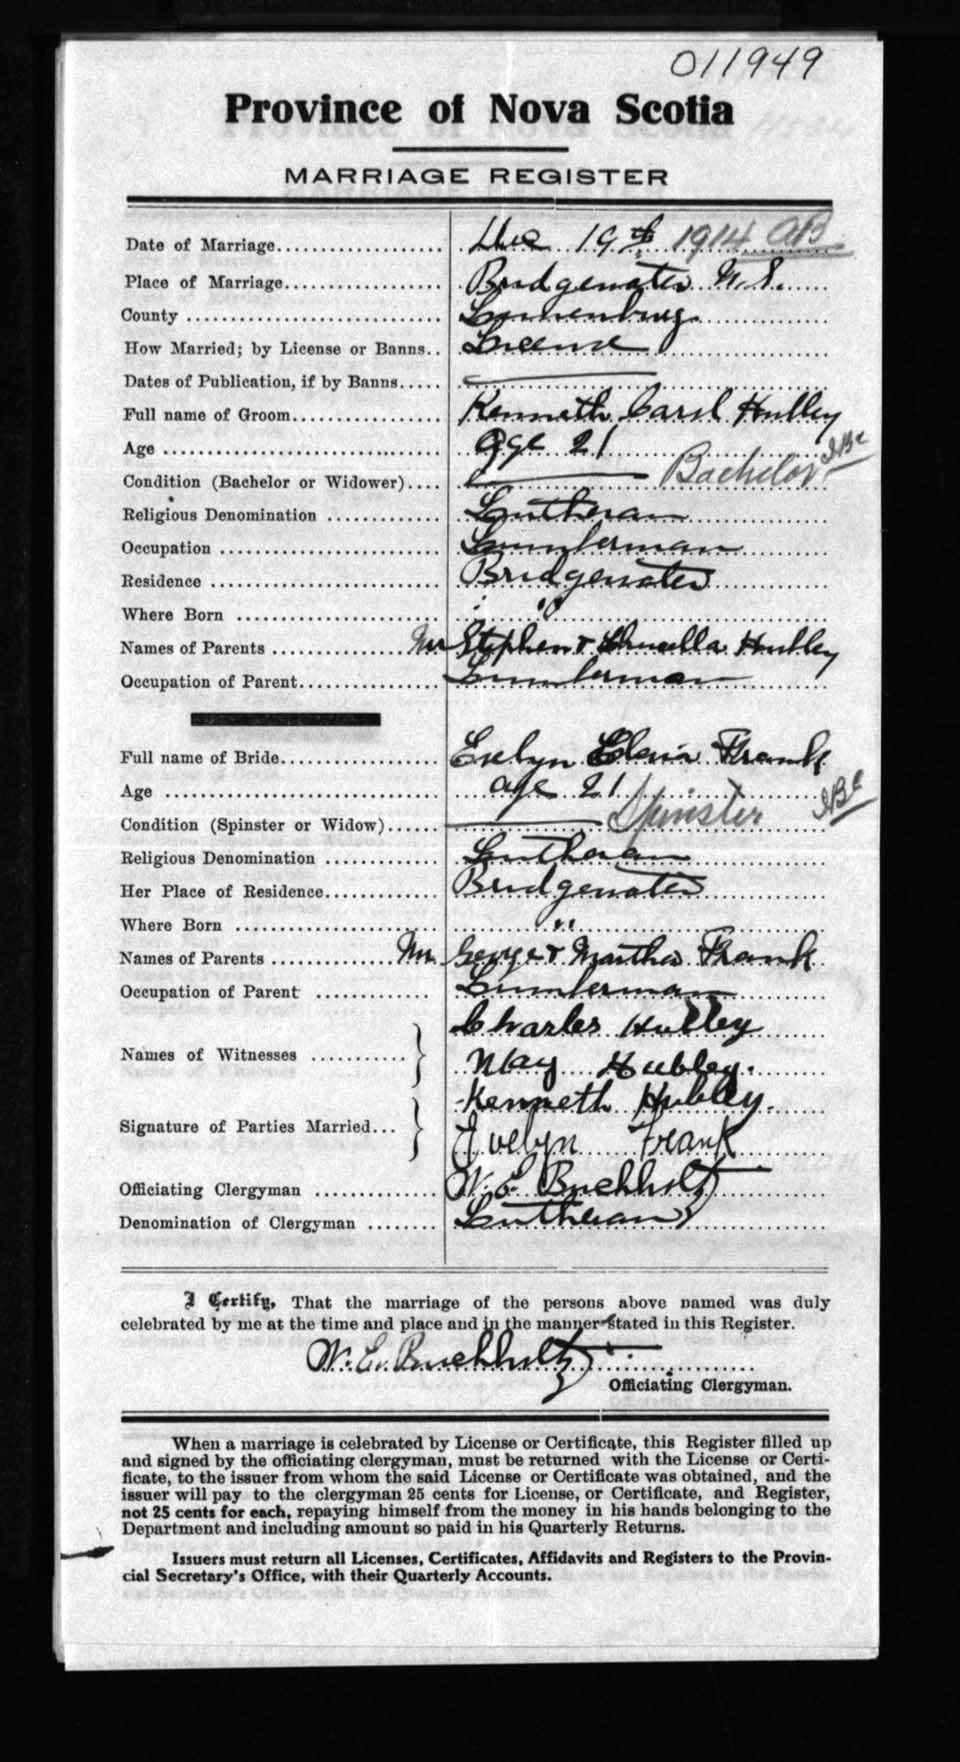 011949
Province of Nova Scotia
MARRIAGE REGISTER
Date of Marriage.................... Dec 19th 1914 AB
Place of Marriage.................. Bridgewater N.S.
County ............................. Lunenburg
How Married; by License or Banns.. License
Dates of Publication, if by Banns.....
Full name of Groom................. Kenneth Carol Hubley
Age ................................ age 21
Condition (Bachelor or Widower).... Bachelor
Religious Denomination ............. Lutheran
Occupation ......................... Lumberman
Residence .......................... Bridgewater
Where Born ........................ " "
Names of Parents ............... Mr Stephen & Hubley
Occupation of Parent................ Lumberman
Full name of Bride.................. Evelyn Frank
Age ................................ age 21
Condition (Spinster or Widow)...... Spinster
Religious Denomination ............ Lutheran
Her Place of Residence............. Bridgewater
Where Born ........................ "
Names of Parents ............... Mr George & Martha Frank
Occupation of Parent .............. Lumberman
Names of Witnesses ........... } Charles Hubley
May Hubley.
Signature of Parties Married... } Kenneth Hubley.
Evelyn Frank
Officiating Clergyman .............. W. E. Buchholtz
Denomination of Clergyman ........ Lutheran
I Certify, That the marriage of the persons above named was duly
celebrated by me at the time and place and in the manner stated in this Register.
W. E. Buchholtz
Officiating Clergyman.
When a marriage is celebrated by License or Certificate, this Register filled up
and signed by the officiating clergyman, must be returned with the License or Certi-
ficate, to the issuer from whom the said License or Certificate was obtained, and the
issuer will pay to the clergyman 25 cents for License, or Certificate, and Register,
not 25 cents for each, repaying himself from the money in his hands belonging to the
Department and including amount so paid in his Quarterly Returns.
Issuers must return all Licenses, Certificates, Affidavits and Registers to the Provin-
cial Secretary's Office, with their Quarterly Accounts.